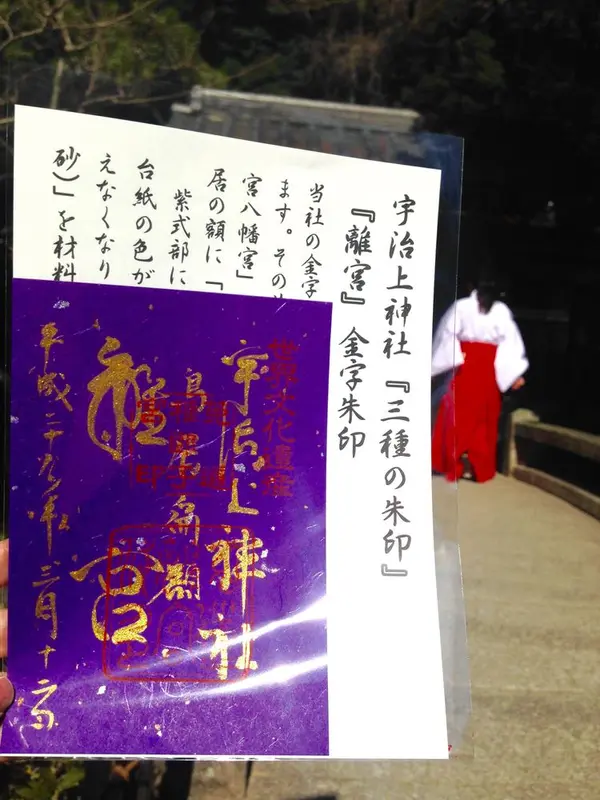 宇治上神社『三種の朱印』
『離宮』 金字朱印
当社の金字
ます。その
宮八幡宮」
居の額に「
紫式部に
台紙の色が
えなくなり
砂)」を材料
世界文化遺産
宇治上神社
鳥居之扁額
離宮
平成二十九年三月十